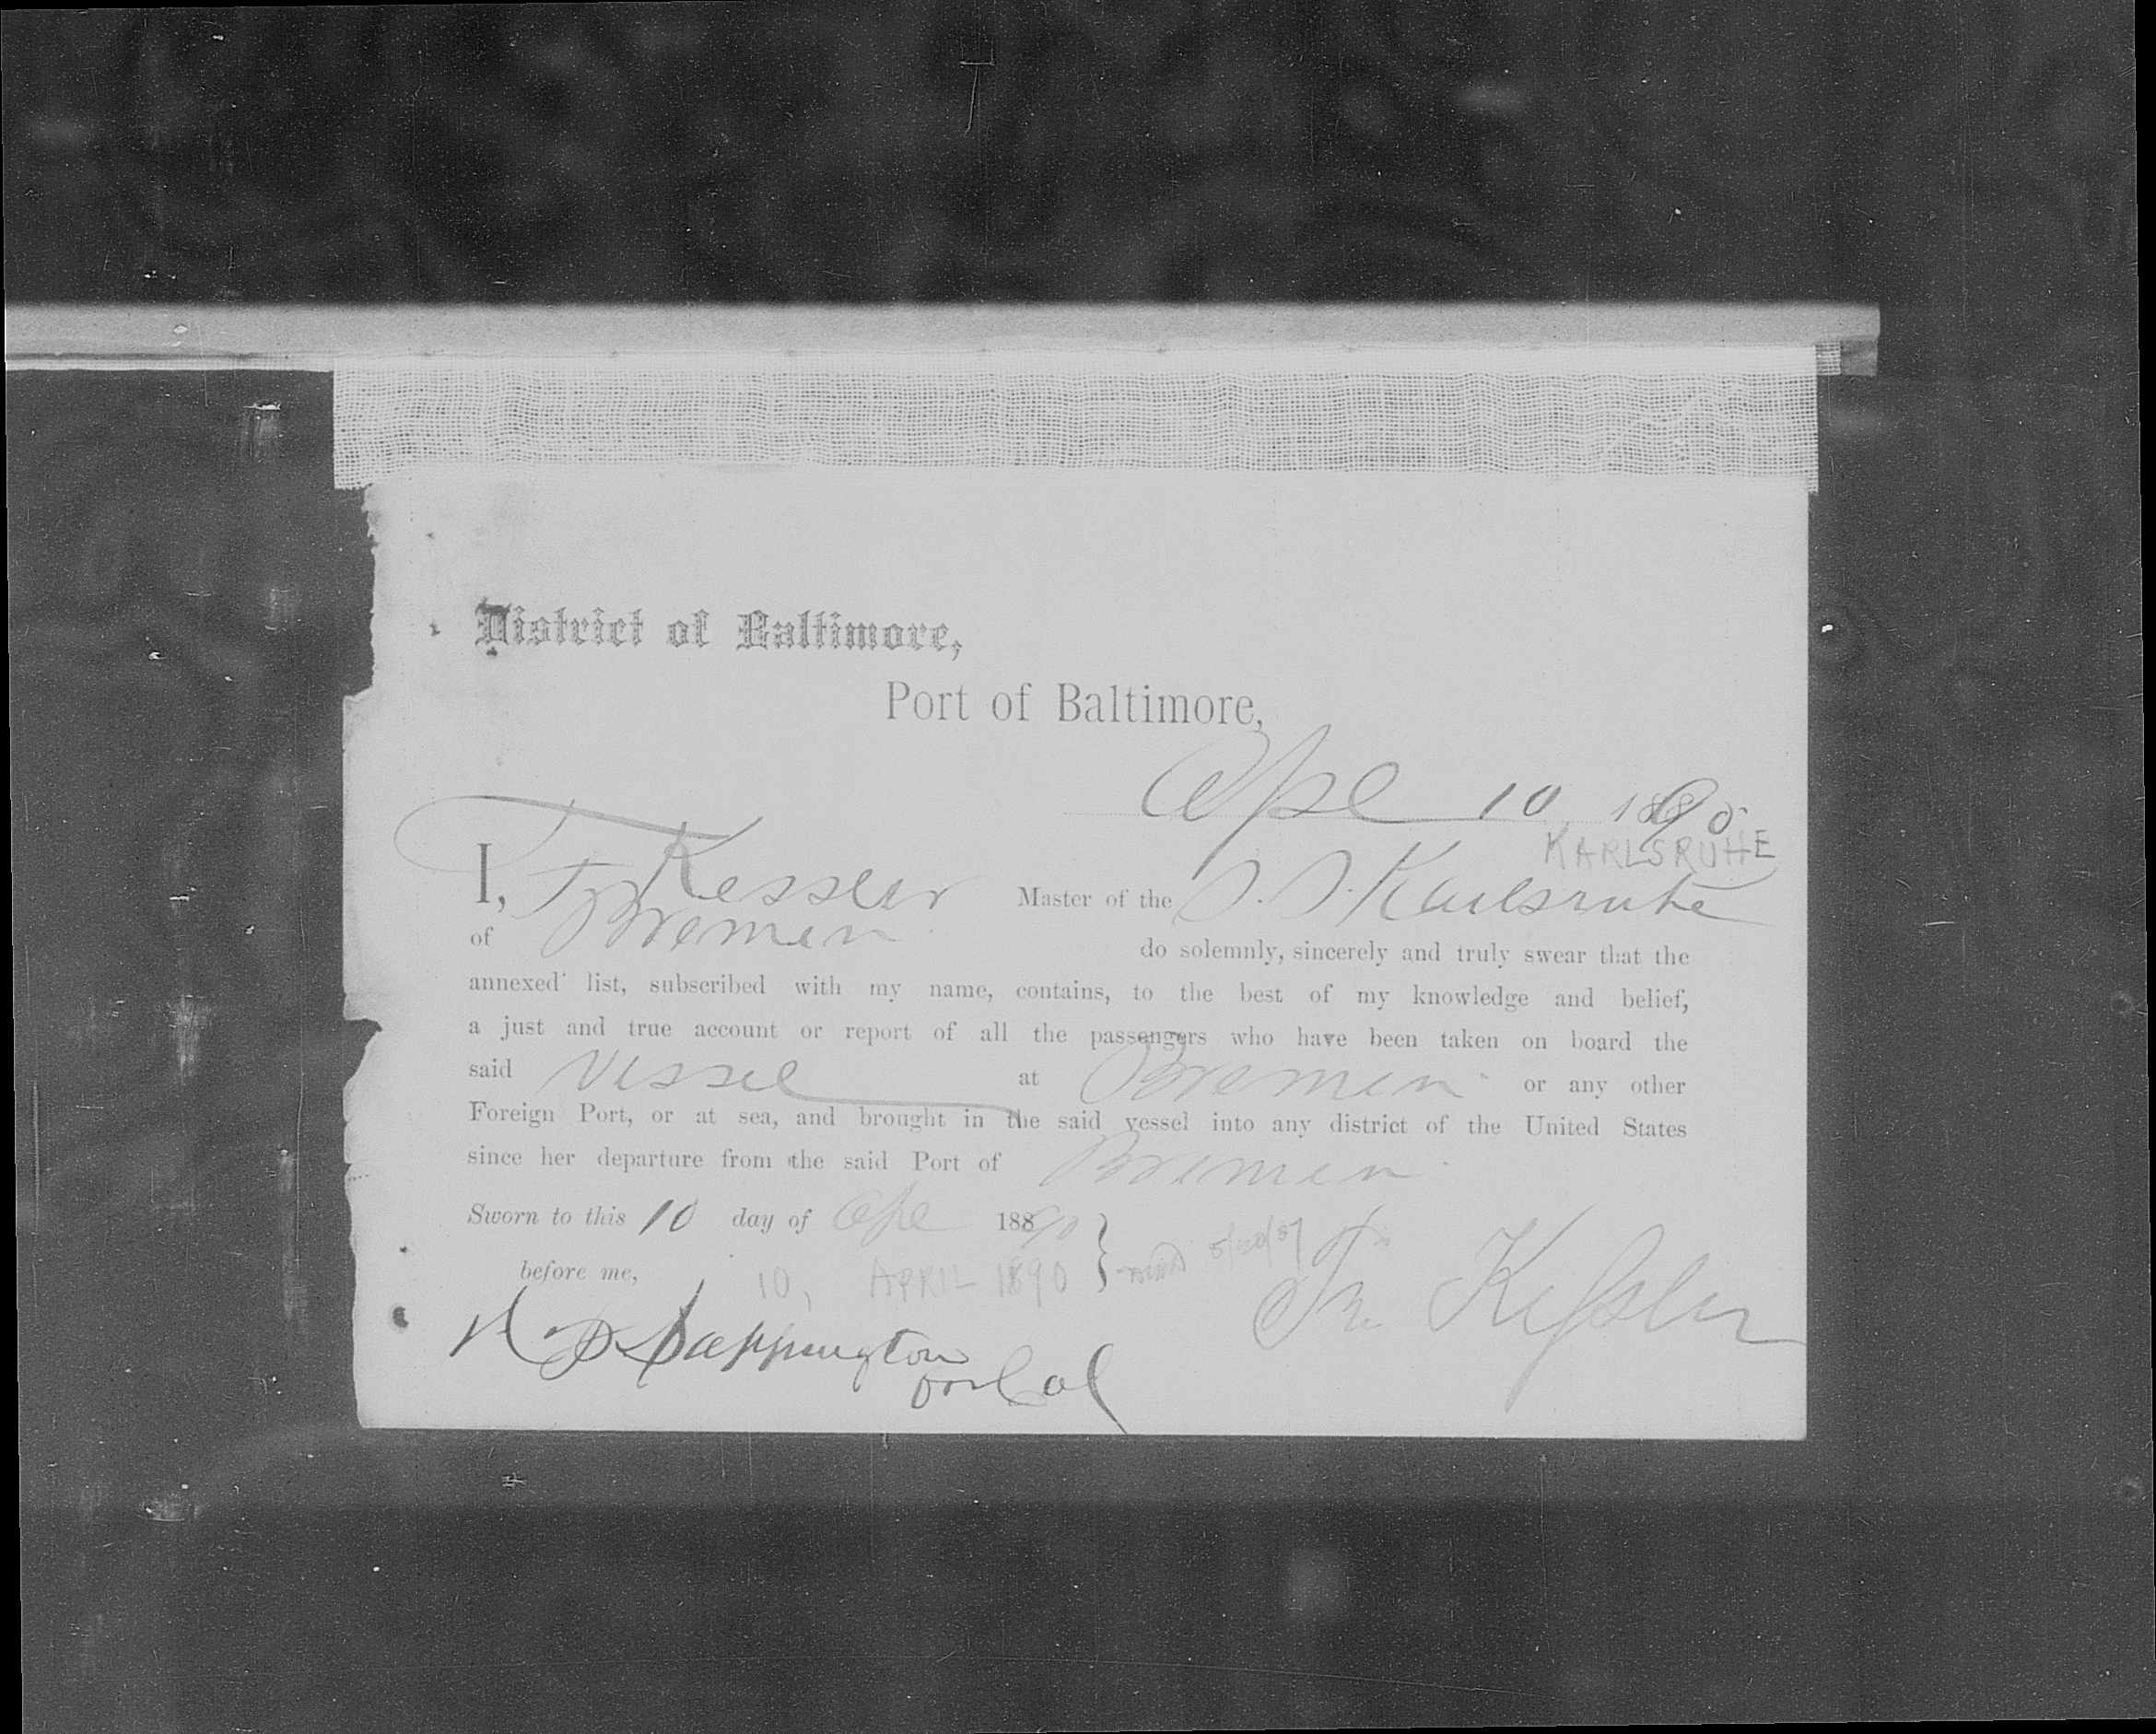 District of Baltimore,
Port of Baltimore,
Apl 10, 1890
KARLSRUHE
I, Kessler Master of the S.S. Karlsruhe
of Bremen do solemnly, sincerely and truly swear that the
annexed list, subscribed with my name, contains, to the best of my knowledge and belief,
a just and true account or report of all the passengers who have been taken on board the
said Vessel at Bremen or any other
Foreign Port, or at sea, and brought in the said vessel into any district of the United States
since her departure from the said Port of Bremen
Sworn to this 10 day of Apl 1890
before me, 10, APRIL 1890
Kessler
Sappington